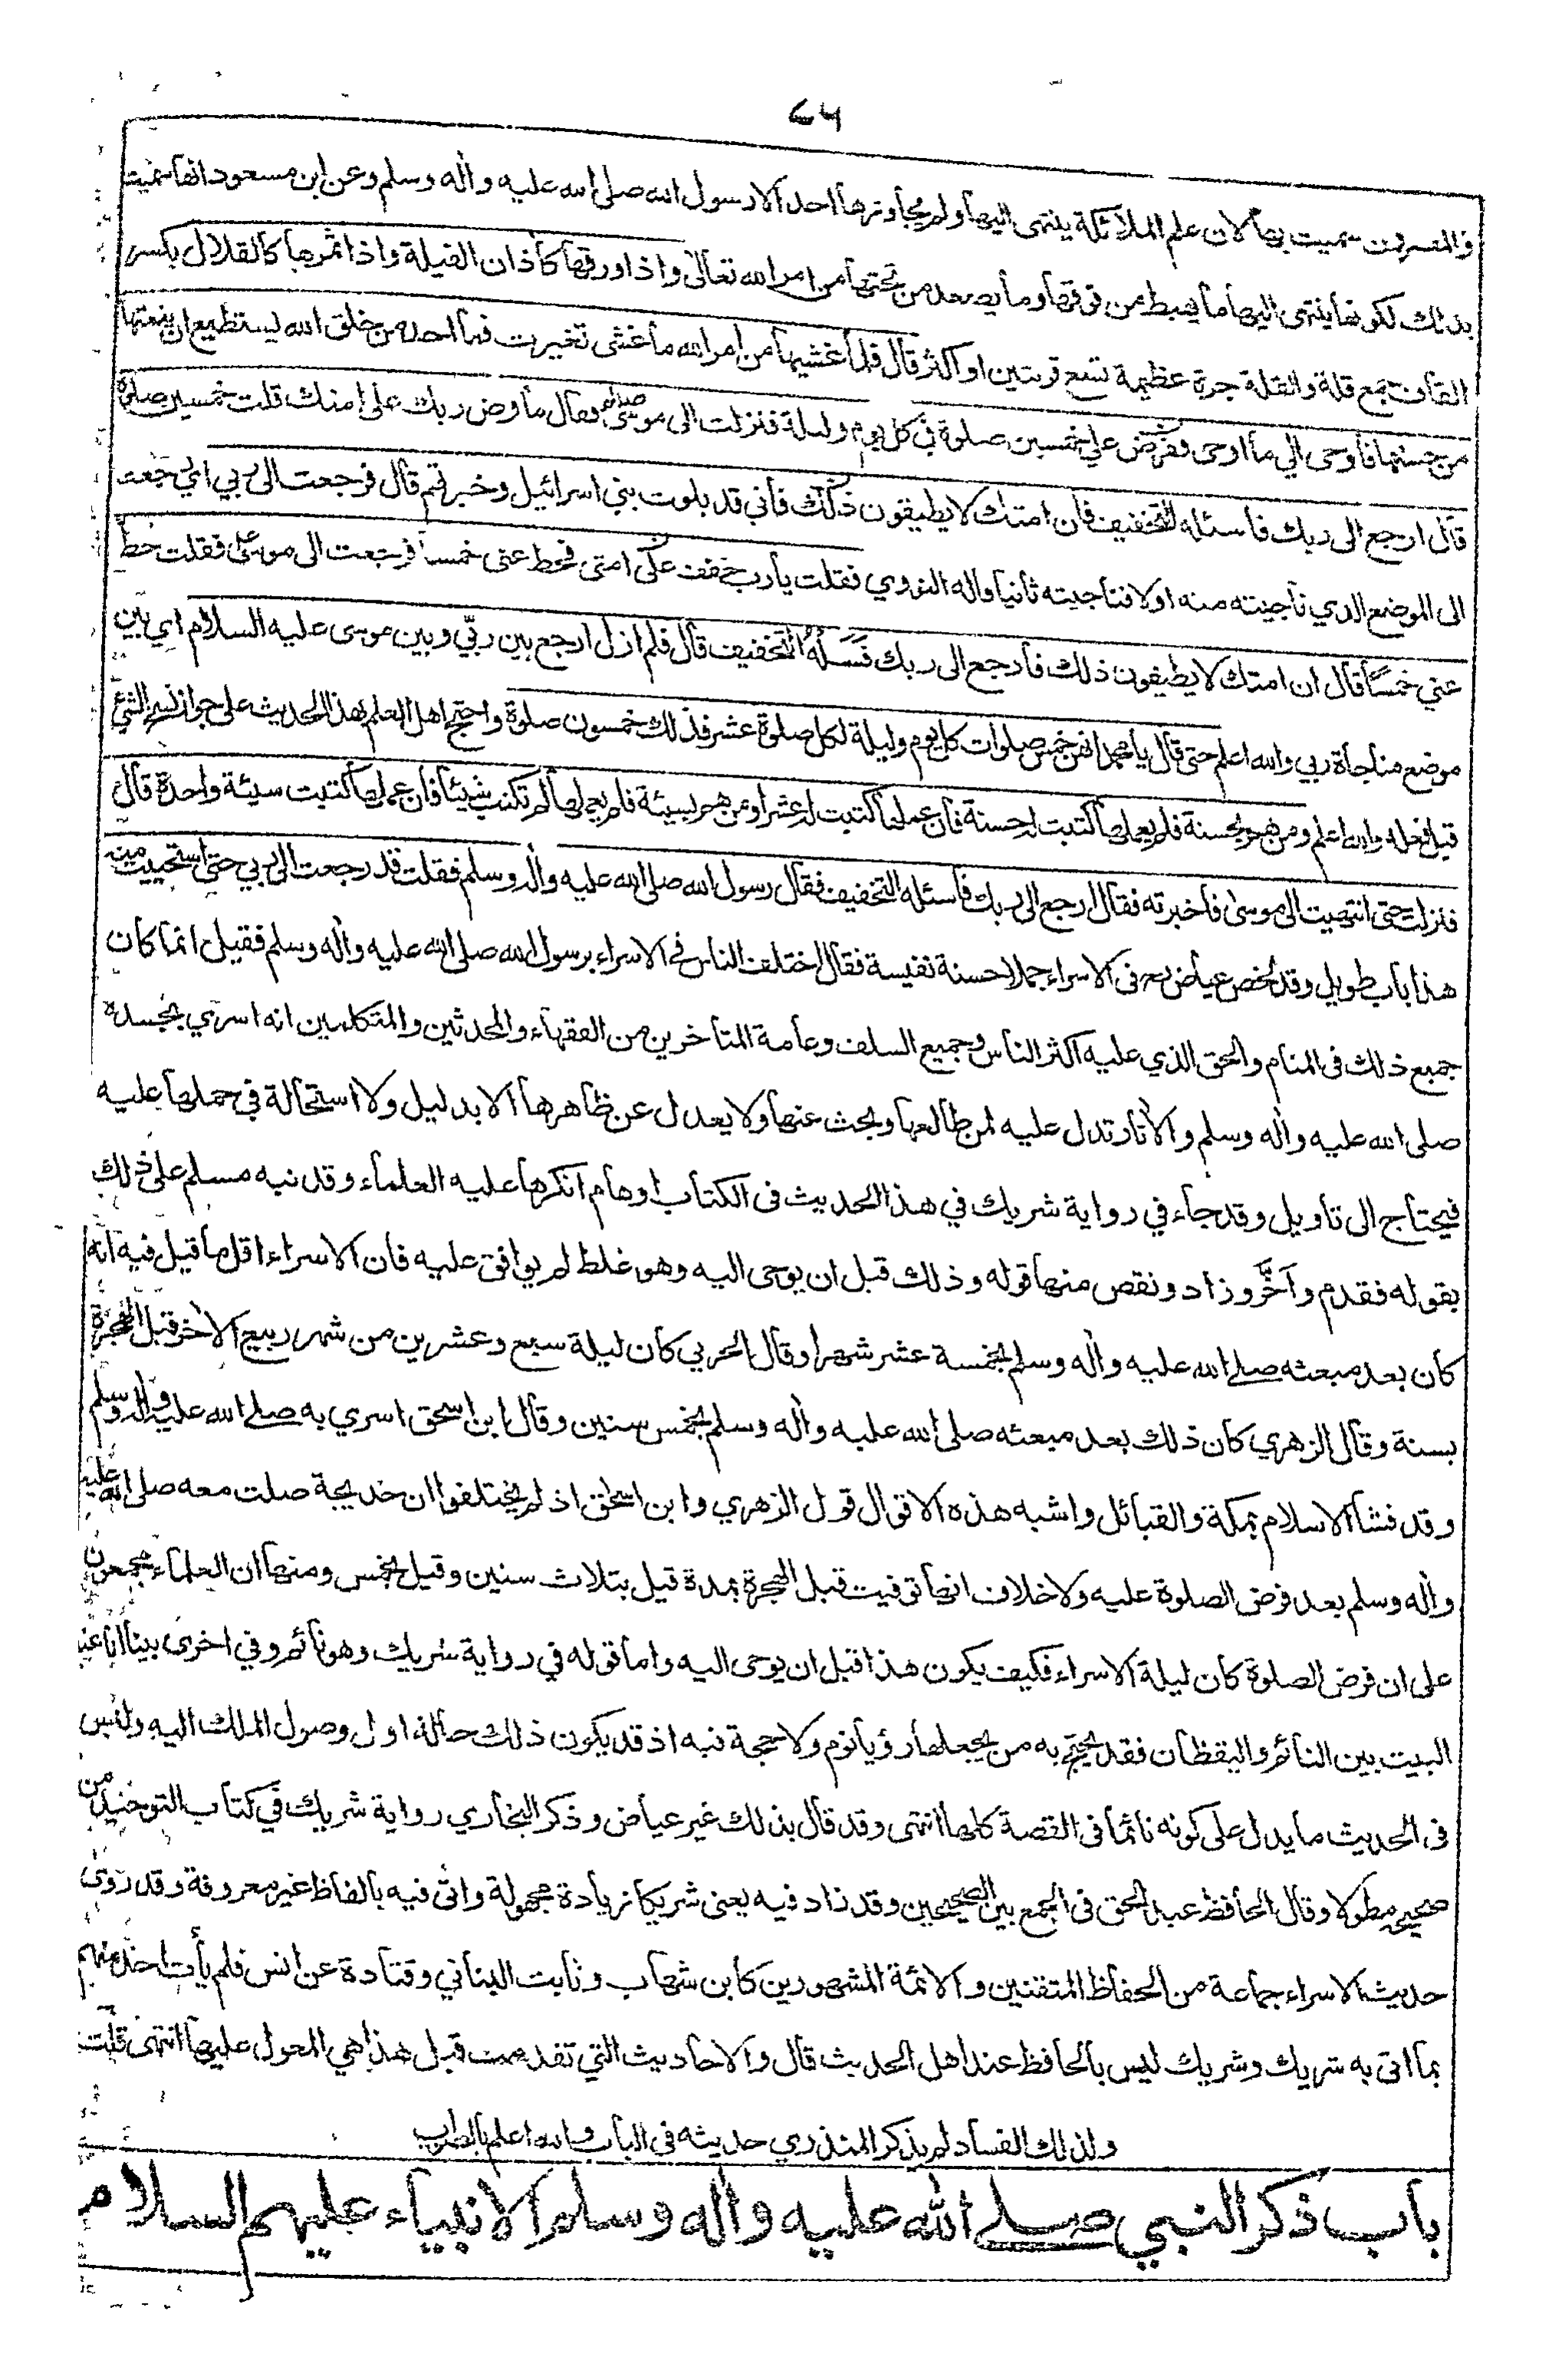 ٧٦
والمفسرون سميت بها لان علم الملائكة ينتهى اليها ولم يجاوزها احد الا رسول الله صلى الله عليه واله وسلم وعن ابن مسعود انها سميت
بذلك لكونها ينتهى اليها ما يهبط من فوقها وما يصعد من تحتها من امر الله تعالى واذا ورقها كاذان الفيلة واذا ثمرها كالقلال بكسر
القاف جمع قلة والقلة جرة عظيمة تسع قربتين او اكثر قال فلما غشيها من امر الله ما غشى تغيرت فما احد من خلق الله يستطيع ان ينعتها
من حسنها فاوحى الي ما اوحى وفرض علي خمسين صلوة في كل يوم وليلة فنزلت الى موسى صلعم فقال ما فرض ربك على امتك قلت خمسين صلوة
قال ارجع الى ربك فاسئله التخفيف فان امتك لا يطيقون ذلك فاني قد بلوت بني اسرائيل وخبرتهم قال فرجعت الى ربي اي رجعت
الى الموضع الذي ناجيته منه اولا فناجيته ثانيا قاله النووي فقلت يا رب خفف على امتى فحط عنى خمسا فرجعت الى موسى فقلت حط
عني خمسًا قال ان امتك لا يطيقون ذلك فارجع الى ربك فَسَلْهُ التخفيف قال فلم ازل ارجع بين ربّي وبين موسى عليه السلام اي بين
موضع مناجاة ربي والله اعلم حتى قال يا محمد انهن خمس صلوات كل يوم وليلة لكل صلوة عشر فذلك خمسون صلوة واحتج اهل العلم بهذا الحديث على جواز نسخ الشئ
قبل فعله والله اعلم ومن هم بحسنة فلم يعملها كتبت له حسنة فان عملها كتبت له عشرا ومن هم بسيئة فلم يعملها لم تكتب شيئا فان عملها كتبت سيئة واحدة قال
فنزلت حتى انتهيت الى موسى فاخبرته فقال ارجع الى ربك فاسئله التخفيف فقال رسول الله صلى الله عليه واله وسلم فقلت قد رجعت الى ربي حتى استحييت منه
هذا باب طويل وقد لخص عياض رح فى الاسراء جملا حسنة نفيسة فقال اختلف الناس في الاسراء برسول الله صلى الله عليه واله وسلم فقيل انما كان
جميع ذلك فى المنام والحق الذي عليه اكثر الناس وجميع السلف وعامة المتأخرين من الفقهاء والمحدثين والمتكلمين انه اسري بجسده
صلى الله عليه واله وسلم والاثار تدل عليه لمن طالعها وبحث عنها ولا يعدل عن ظاهرها الا بدليل ولا استحالة في حملها عليه
فيحتاج الى تاويل وقد جاء في رواية شريك في هذا الحديث فى الكتاب اوهام انكرها عليه العلماء وقد نبه مسلم على ذلك
بقوله فقدم وأخَّر وزاد ونقص منها قوله وذلك قبل ان يوحى اليه وهو غلط لم يوافق عليه فان الاسراء اقل ما قيل فيه انه
كان بعد مبعثه صلى الله عليه واله وسلم بخمسة عشر شهرا وقال الحربي كان ليلة سبع وعشرين من شهر ربيع الاخر قبل الهجرة
بسنة وقال الزهري كان ذلك بعد مبعثه صلى الله عليه واله وسلم بخمس سنين وقال ابن اسحق اسري به صلى الله عليه واله وسلم
وقد فشا الاسلام بمكة والقبائل واشبه هذه الاقوال قول الزهري وابن اسحق اذ لم يختلفوا ان خديجة صلت معه صلى الله عليه
واله وسلم بعد فرض الصلوة عليه ولا خلاف انها توفيت قبل الهجرة بمدة قيل بثلاث سنين وقيل بخمس ومنها ان العلماء مجمعون
على ان فرض الصلوة كان ليلة الاسراء فكيف يكون هذا قبل ان يوحى اليه واما قوله في رواية شريك وهو نائم وفي اخرى بينا انا عند
البيت بين النائم واليقظان فقد يحتج به من يجعلها رؤيا نوم ولا حجة فيه اذ قد يكون ذلك حالة اول وصول الملك اليه وليس
فى الحديث ما يدل على كونه نائما فى القصة كلها انتهى وقد قال بذلك غير عياض وذكر البخاري رواية شريك في كتاب التوحيد من
صحيحه مطولا وقال الحافظ عبد الحق فى الجمع بين الصحيحين وقد زاد فيه يعنى شريكا زيادة مجهولة واتى فيه بالفاظ غير معروفة وقد روى
حديث الاسراء جماعة من الحفاظ المتقنين والائمة المشهورين كابن شهاب وثابت البناني وقتادة عن انس فلم يأت احد منهم
بما اتى به شريك وشريك ليس بالحافظ عند اهل الحديث قال والاحاديث التي تقدمت قبل هذا هي المعول عليها انتهى قلت
ولذلك الفساد لم يذكر المنذري حديثه فى الباب والله اعلم بالصواب
باب ذكر النبي صلى الله عليه واله وسلم الانبياء عليهم السلام